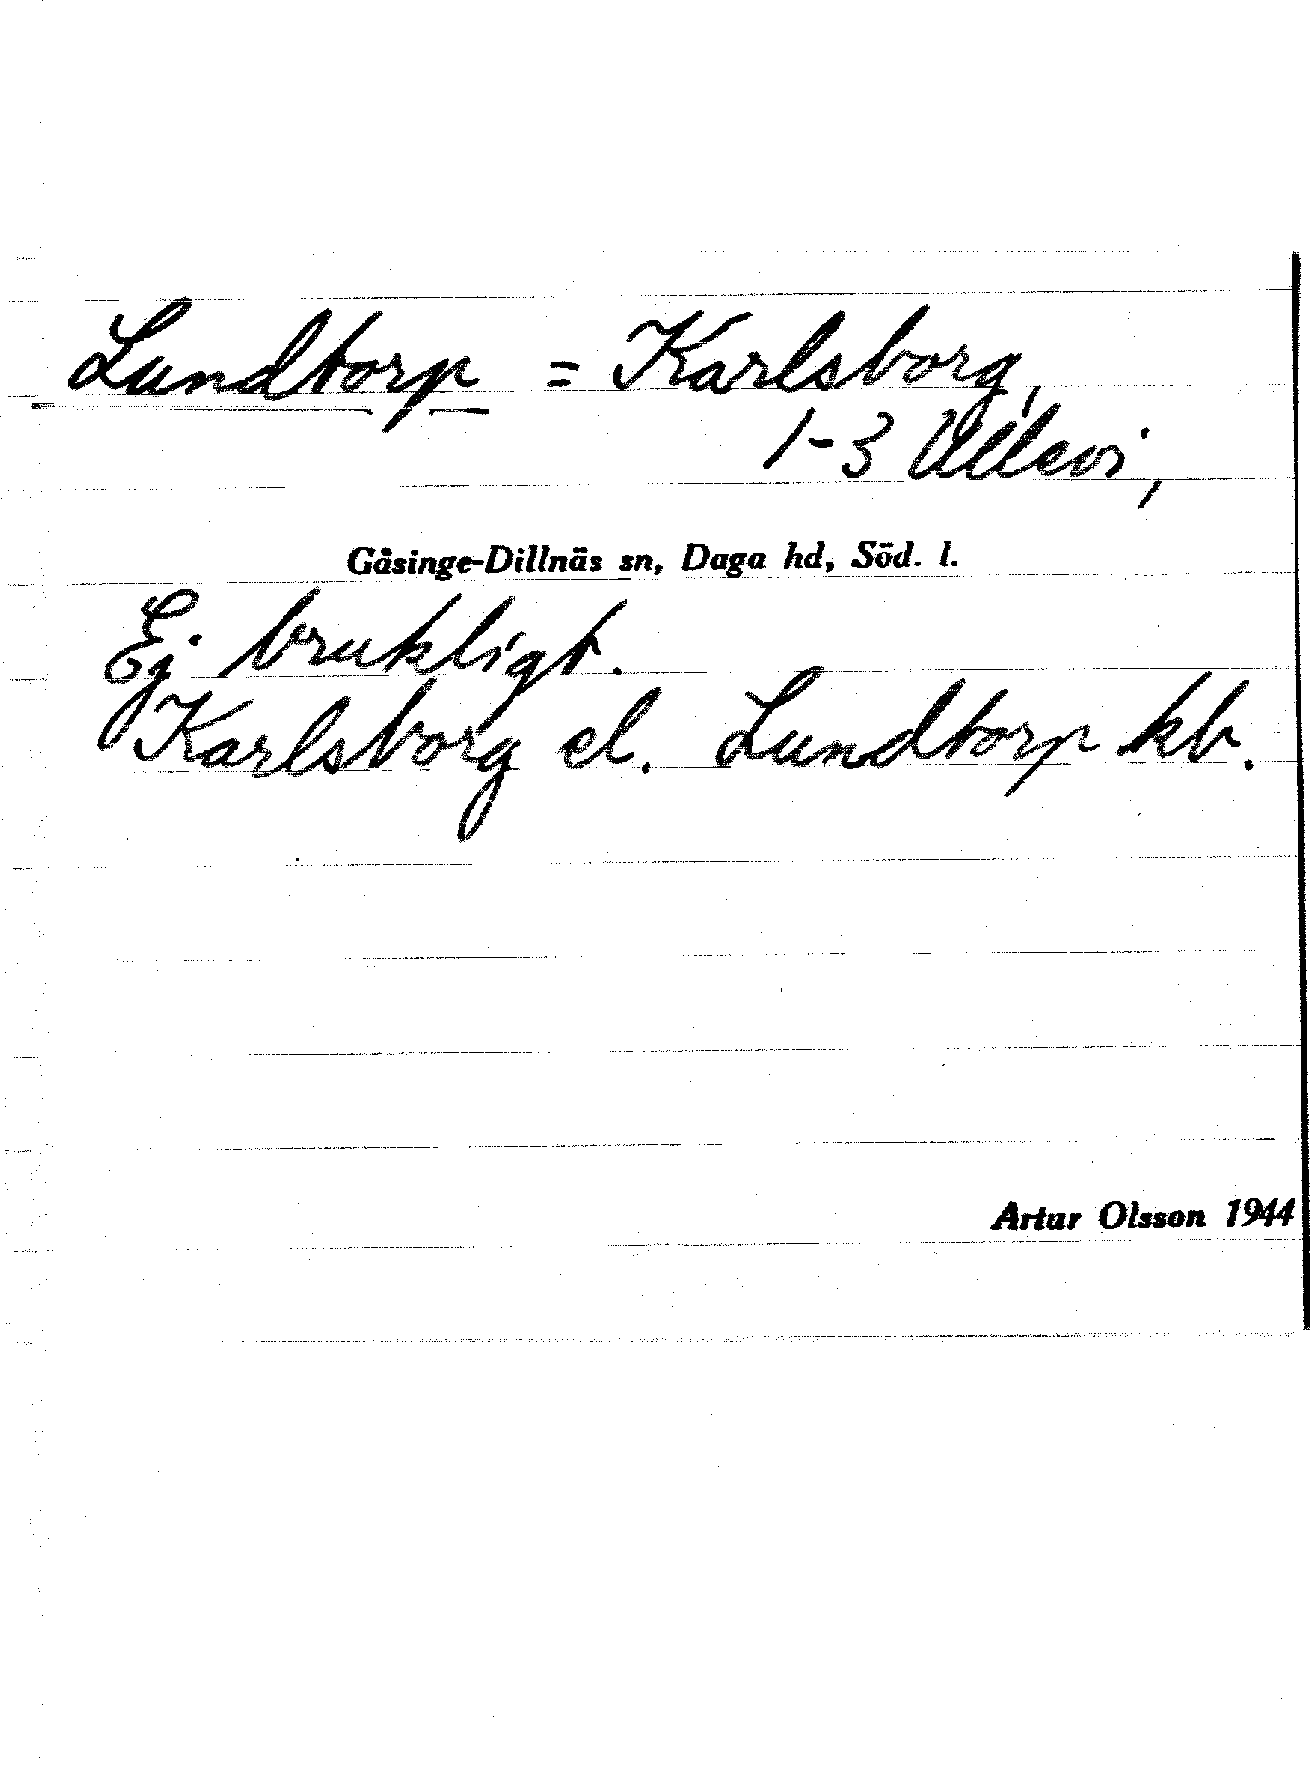 Lundtorp = Karlsborg,
1-3 Ullevi,
Gåsinge-Dillnäs sn, Daga hd, Söd. l.
Ej brukligt.
Karlsborg el. Lundtorp kb.
Artur Olsson 1944